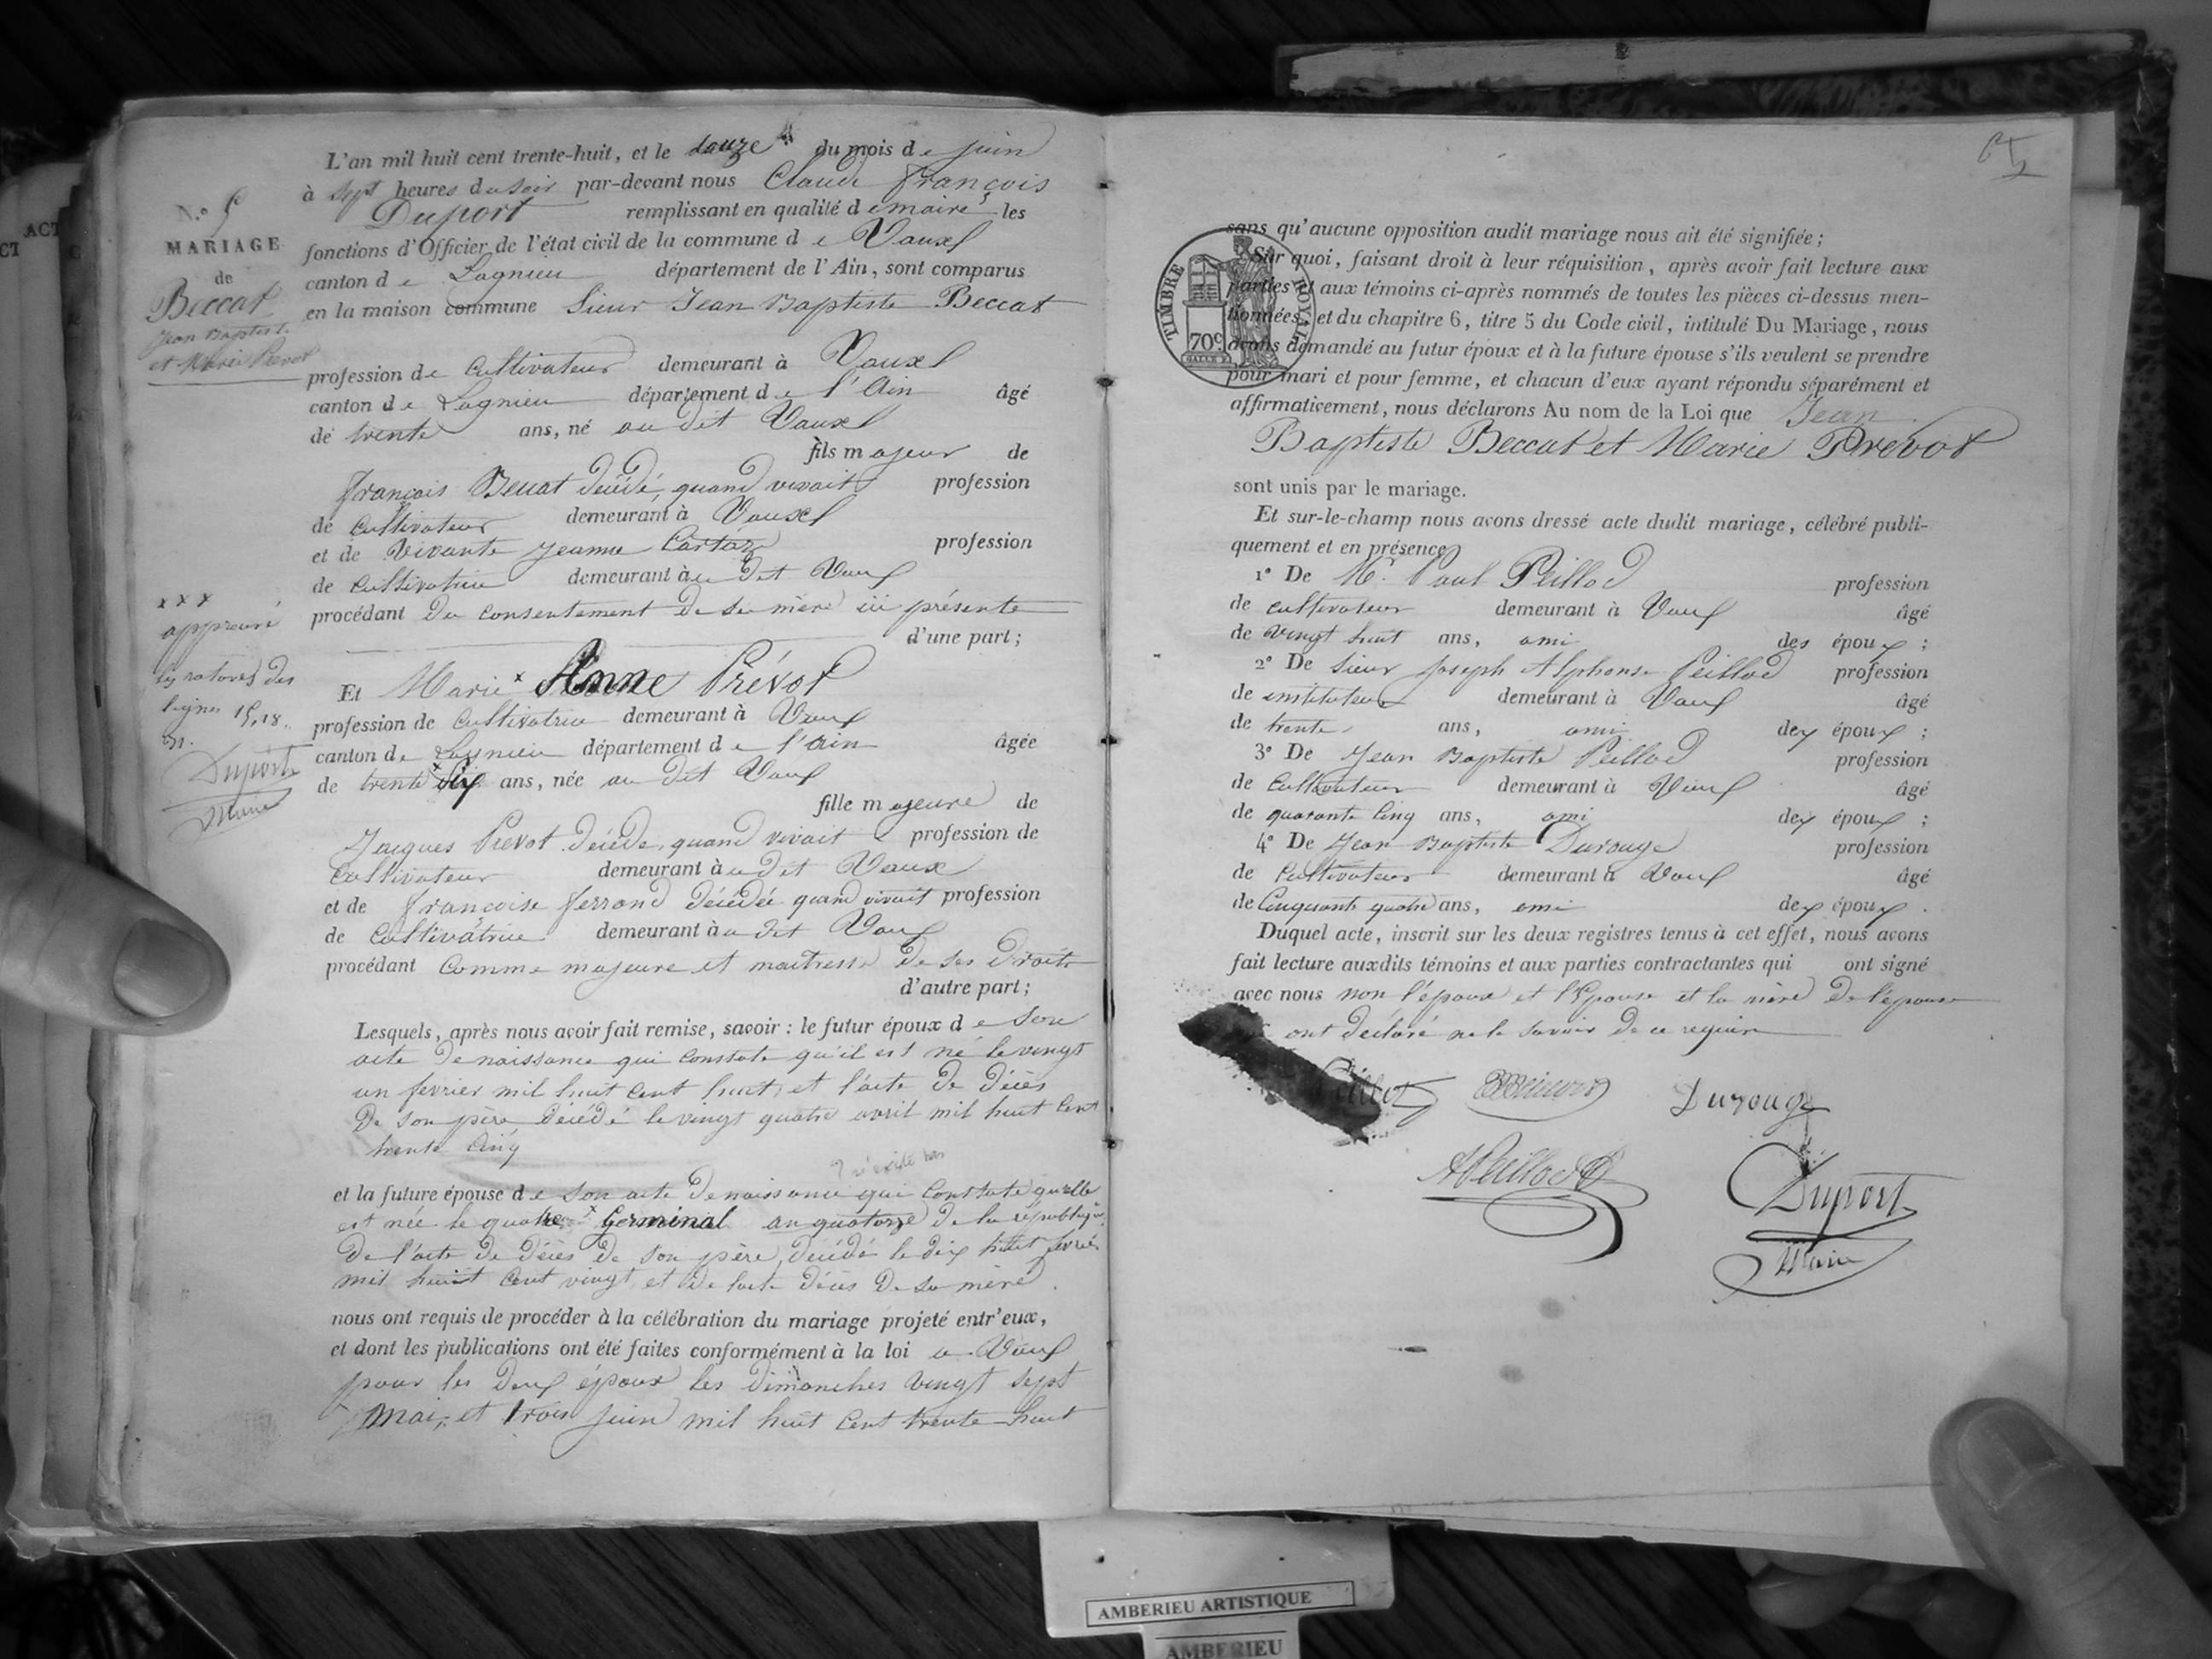 L'an mil huit cent trente-huit, et le douze du mois de juin
à sept heures du soir par-devant nous Claude François
Duport remplissant en qualité de maire les
fonctions d'Officier de l'état civil de la commune de Vaux
canton de Lagnieu département de l'Ain, sont comparus
en la maison commune Sieur Jean Baptiste Beccat
profession de cultivateur demeurant à Vaux
canton de Lagnieu département de l'Ain âgé
de trente ans, né au dit Vaux
fils majeur de
François Beccat décédé, quand vivait profession
de cultivateur demeurant à Vaux
et de vivante Jeanne Cartaz profession
de cultivatrice demeurant au dit Vaux
procédant du consentement de sa mère ici présente
d'une part;
Et Marie x Anne Prévot
profession de cultivatrice demeurant à Vaux
canton de Lagnieu département de l'Ain âgée
de trente x six ans, née au dit Vaux
fille majeure de
Jacques Prevot décédé, quand vivait profession de
cultivateur demeurant au dit Vaux
et de Françoise ferrand décédée quand vivait profession
de cultivatrice demeurant au dit Vaux
procédant comme majeure et maitresse de ses droits
d'autre part;
Lesquels, après nous avoir fait remise, savoir: le futur époux de son
acte de naissance qui constate qu'il est né le vingt
un fevrier mil huit cent huit, et l'acte de décès
de son père, décédé le vingt quatre avril mil huit cent
trente cinq
et la future épouse de son acte de naissance qui constate qu'elle
est née le quatre x Germinal an quatorze de la république
de l'acte de décès de son père, décédé le dix huit fevrier
mil huit cent vingt et de l'acte décès de sa mère.
nous ont requis de procéder à la célébration du mariage projeté entr'eux,
et dont les publications ont été faites conformément à la loi a Vaux
pour les deux époux les dimanches vingt sept
mai, et trois juin mil huit cent trente huit
N.° 5
MARIAGE
de
Beccat
Jean Baptiste
et Marie Prevot
x x x
approuvé
les ratures des
lignes 15, 18.
Duport
Maire
n'existe pas
sans qu'aucune opposition audit mariage nous ait été signifiée;
Sur quoi, faisant droit à leur réquisition, après avoir fait lecture aux
parties et aux témoins ci-après nommés de toutes les pièces ci-dessus men-
tionnées, et du chapitre 6, titre 5 du Code civil, intitulé Du Mariage, nous
avons demandé au futur époux et à la future épouse s'ils veulent se prendre
pour mari et pour femme, et chacun d'eux ayant répondu séparément et
affirmativement, nous déclarons Au nom de la Loi que Jean
Baptiste Beccat et Marie Prevot
sont unis par le mariage.
Et sur-le-champ nous avons dressé acte dudit mariage, célébré publi-
quement et en présence
1° De Mr. Paul Peillod profession
de cultivateur demeurant à Vaux âgé
de vingt huit ans, ami des époux;
2° De Sieur Joseph Alphonse Peillod profession
de instituteur demeurant à Vaux âgé
de trente ans, ami des époux;
3° De Jean Baptiste Peillod profession
de cultivateur demeurant à Vaux âgé
de quarante cinq ans, ami des époux;
4° De Jean Baptiste Durouge profession
de cultivateur demeurant à Vaux âgé
de cinquante quatre ans, ami des époux.
Duquel acte, inscrit sur les deux registres tenus à cet effet, nous avons
fait lecture auxdits témoins et aux parties contractantes qui ont signé
avec nous non l'époux et l'épouse et la mère de l'époux
ont déclaré ne le savoir de ce requis
TIMBRE ROYAL
70c
Durouge
APeillod
Duport
Maire
AMBERIEU ARTISTIQUE
AMBERIEU